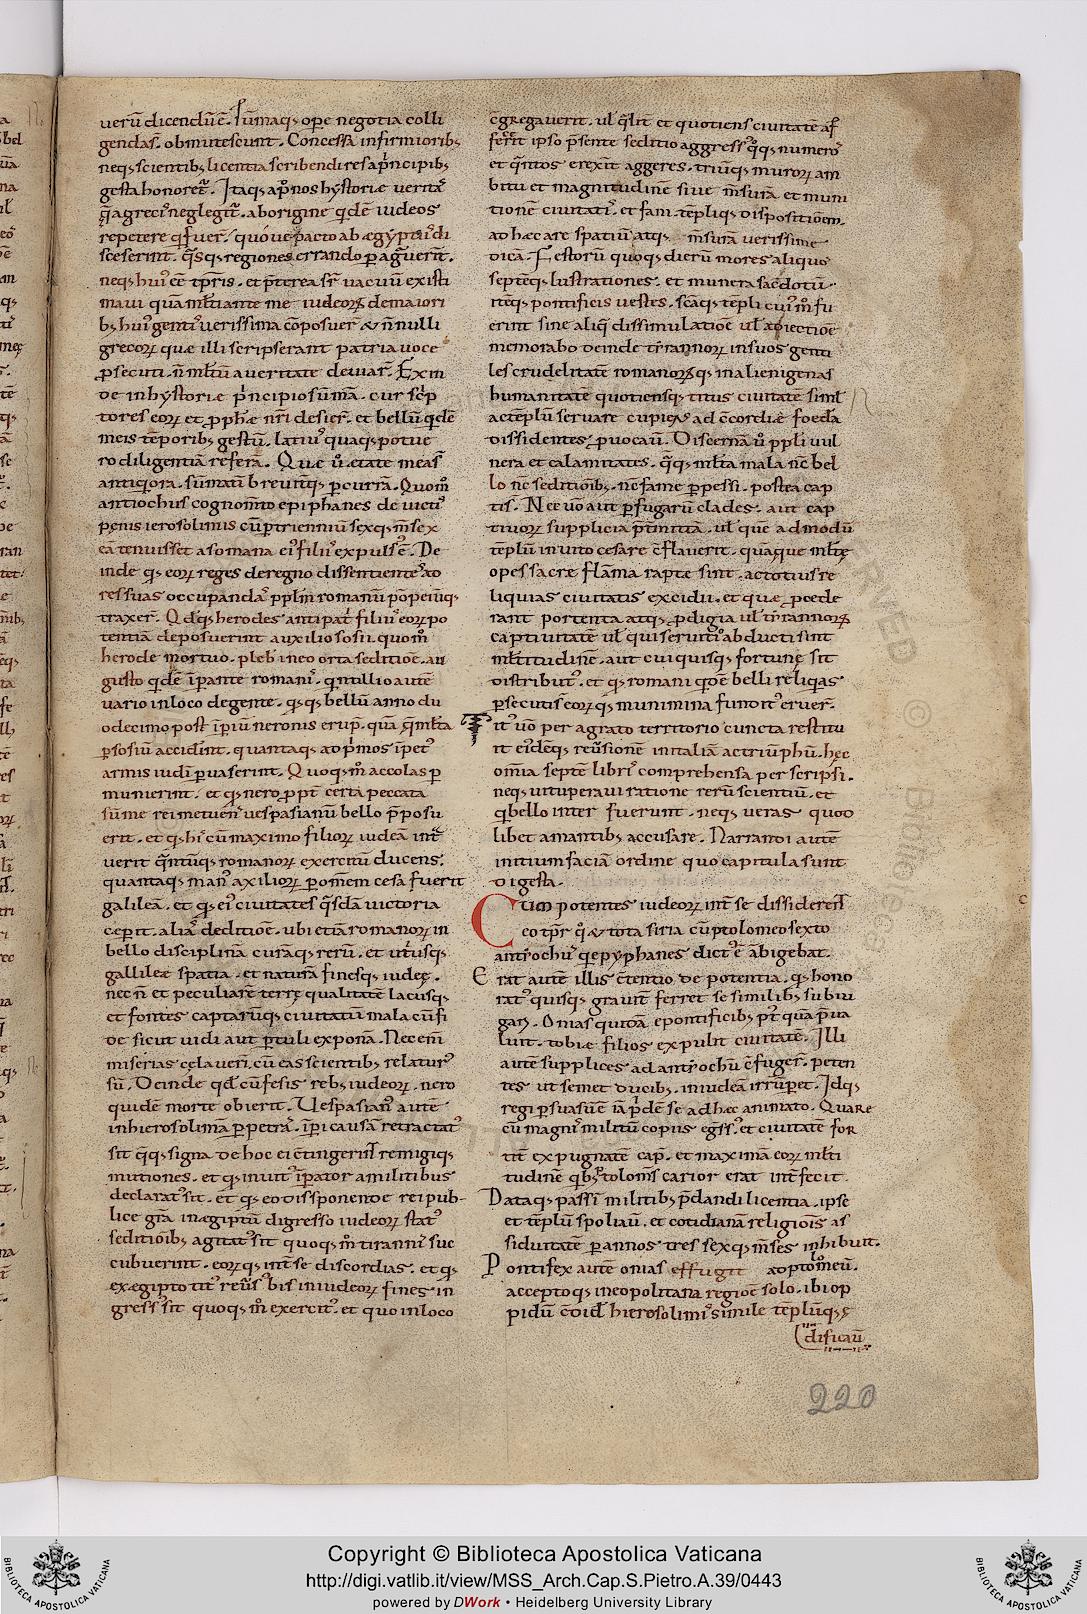 uerū dicendū ē. Iūmaq; ope negotia colli
gendas. obmutescunt. Concessa infirmiorib;
neq; scientib; licentia scribendi res a pͥncipib;
gesta honoret᷑. Itaq; apͩ nos hystoriæ uerita᷑
q̄a grecis neglegit᷑. aborigine qͥdē iudeos
repetere qͥ fueꝝ. quoue pacto ab ægyptiis di
scesserint. q̄sq; regiones errando ꝑagūerīt.
neq; huiꝰ ēe tꝑris. et p̄terea sr̄ uacuū existi
maui quā mlͭi ante me iudeorꝝ de maiori
b; huiꝰ gentiſ uerissima cōposuer & n̄ nulli
grecorꝝ quæ illi scripserant patria uoce
ꝓsecuti. n̄ mlͭū a ueritate deuiar̄. Exin
de in hystoriæ pͥncipio sūma. cur scͥp
tores eorꝝ et ꝓphæ nr̄i desier̄. et bellū qͥdē
meis tēporib; gestū. latiuſ quaq; potue
ro diligentiā referā. Quæ u̅ etate meaſ
antiqͥora. sūmatī breuit̄q; ꝑcurrā. Quom̊
antiochus cognom̄to epiphanes deuictiſ
penis ierosolimis cū ꝑ trienniū sexq; m̄sex
eā tenuisset asomana eiꝰ filiiſ expulsꝰ ē. De
inde qͥs eorꝝ reges de regno dissentienteſ ad
res suas occupandaſ pplm̄ romanū pōpeiūq;
traxer̄. Qd̄q; herodes antipatͥ filiuſ eorꝝ po
tentiā deposuerint auxilio sosii. quom̊
herode mortuo. plebſ in eo orta seditioe. au
gusto qͥdē īperante romaniſ. qͥntillio autē
uario in loco degente. qͥsq; bellū anno du
odecimo post īpiū neronis erup̄. quā qͥ mlͭta
ꝑ iosiū accidint. quantaq; ad pͥmos īpetꝰ
armis iudī ꝑuaserint. Quoq; m̊ accolas ꝑ
munierint. et qͥs nero ꝓpt̄ certa peccata
sūmæ rei metuenſ uespasianū bello p̄posu
erit. et qͥs hiſ cū maximo filiorꝝ iudeā int͛
uerit qͣntuſq; romanorꝝ exercitū ducens.
quantaq; manꝰ axiliorꝝ ꝑ omēm cesa fuerit
galileā. et qͥs eiꝰ ciuitates qͣsdā uictoria
ceperit. aliaſ deditioe. ubi etiā romanorꝝ in
bello disciplinā curāq; rerū. et ut͛iusq;
gallileæ spatia. et naturā finesq; iudeę.
nec n̄ et peculiarē terrę qualitatē lacusq;
et fontes captarūq; ciuitatū mala cū fi
de sicut uidi aut ꝑtuli exponā. Nec em̄
miserias celauerī. cū eas scientib; relaturꝰ
sū. Deinde qd̄ cū fessis reb; iudeorꝝ. nero
quidē morte obierit. Uespasianꝰ autē
in hierosolimā ꝑpetrāſ. īperii causa retractatꝰ
sit q̄q; signa de hoc ei ꝯtingerīt remigiq;
mutiones. et qͥs inuitꝰ īpator a militibus
declaratꝰ sit. et qͥs eo disponende rei pub-
lice gr̄a in ægiptū digresso iudeorꝝ statꝰ
seditionib; agitatꝰ sit quoq; m̊ tiranniſ suc
cubuerint. eorꝝq; int͛ se discordias. et qͥs
ex egipto titꝰ reu͛sꝰ bis in iudeorꝝ fines in
gressꝰ sit quoq; m̊ exercitꝰ. et quo in loco
ꝯgregauerit. ul̄ qͣlit͛ et quotiens ciuitatē af
fec̄erit ipso p̄sente seditio aggressꝰ q̊sq; numero
et qͣntos erexit aggeres. triūq; murorꝝ am
bitu et magnitudinē siue m̄surā et muni
tionē ciuitatiſ. et fani tēpliq; dispositionem.
ad hæc are spatiū atq; m̄surā uerissime
dicā. Festorū quoq; dierū mores aliquos
septēq; lustrationes. et munera sac͛dotū.
itēq; pontificis uestes. scāq; tēpli cuiꝰm̊ fu
erint sine aliqͣ dissimulatioe ul̄ adiectioe
memorabo deinde tyrannorꝝ in suos genti
les crudelitatē romanorꝝq; in alienigenas
humanitatē quotiensq; titus ciuitatē siml̄
ac tēplū seruare cupiens ad ꝯcordiæ foeda
dissidentes ꝓuocau̅. Discernā u̅ ppli uul
nera et calamitates. q̄q; mlͭa mala nc̄ bel
lo nc̄ seditioib;. nc̄ fame ꝑpessi. postea cap
tiſ. Nec uō aut ꝑfugarū clades. aut cap
tiuorꝝ supplicia p̄t̄mittā. ul̄ quē admodū
tēplū inuito cesare ꝯflauerit. quāque mlͭę
opes sacræ flāma raptæ sint. ac totius re
liquias ciuitatis excidii. et quæ p̄cede
rant portenta atq; ꝓdigia ul̄ tyrannorꝝ
captiuitatē ul̄ qui seruituſ abducti sint
mlͭitudinē. aut cui quisq; fortunę sit
distributꝰ. et qͥs romani qͥdē belli reliqͥas
ꝑsecuti s̄ eorꝝq; munimina funditꝰ eruer̄.
titꝰ uō per agrato territorio cuncta restitu
it eiꝰdēq; reu͛sionē in italiā ac triūphū. hęc
omīa septē libriſ comprehensa perscripsi.
neq; uituperaui ratione rerū scientiū. et
qͥ bello inter fuerunt. neq; ueras quod
libet amantib; accusare. Narrandi autē
initium faciā ordine quo capitula sunt
digesta.
Cum potentes iudeorꝝ int͛ se dissiderent
eo tpr̄ qͦ & tota siria cū ptolomeo sexto
antiochūſ qͥ epyphanes dictꝰ ē ābigebat.
Erat autē illis ꝯtentio de potentia. qͥs hono
ratꝰ quisq; grauit͛ ferret se similib; subiu
gari. Onias quidā e pontificib; pꝰt quā p̄ua
luit. tobiæ filios expulit ciuitate. Illi
autē supplices ad antiochū ꝯfuger̄. peten
tes ut semet ducib; in iudeā irrūpet. Idq;
regi ꝑsuasū ē iā pͥdē se ad hæc animato. Quare
cū magniſ militū copiis egssꝰ. et ciuitatē for
tit͛ expugnatē cap̄. et maximā eorꝝ mlͭi
tudinē qͥb; ptolomeꝰ carior erat int͛fecit.
Dataq; passī militib; p̄dandi licentia. ipse
et tēplū spoliau̅. et cotidianā religiois as
siduitatē ꝑ annos tres sexq; m̄ses inhibuit.
Pontifex autē onias effugit ad ptolomeū.
acceptoq; in eopolitana regioe solo. ibi op
pidū ꝯdid̄ hierosolimiſ simile tēplūq; ę
dificau̅
220
Copyright © Biblioteca Apostolica Vaticana
http://digi.vatlib.it/view/MSS_Arch.Cap.S.Pietro.A.39/0443
powered by DWork • Heidelberg University Library